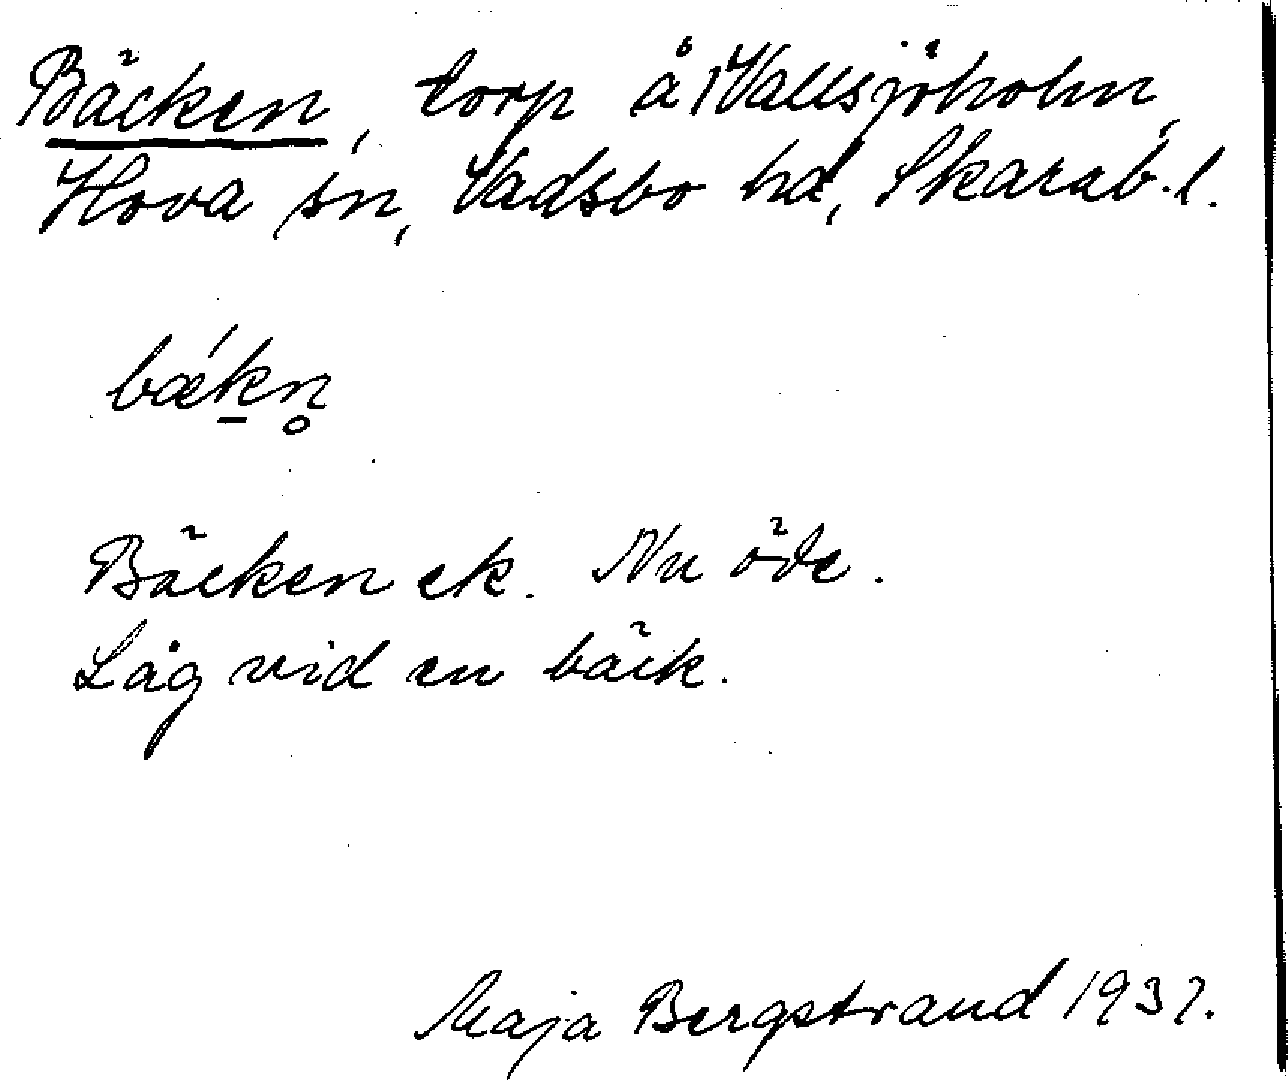 Bäcken, torp å 1 Vallsjöholm,
Hova sn, Vadsbo hd, Skarab. l.
bǽk̠n̥
Bäcken ek. Nu öde.
Låg vid en bäck.
Maja Bergstrand 1937.